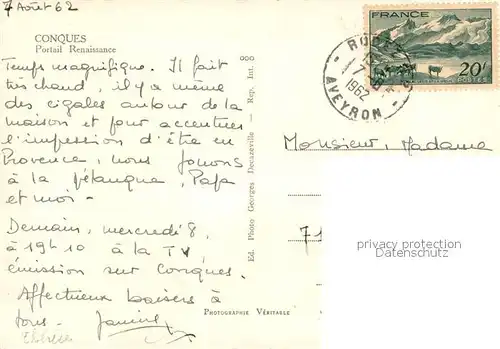 7 Août 62
CONQUES
Portail Renaissance
Temps magnifique. Il fait
très chaud, il y a même
des cigales autour de la
maison et pour accentuer
l'impression d'être en
Provence, nous jouons
à la pétanque, Papa
et moi -
Demain, mercredi 8,
à 19h10 à la TV
émission sur Conques.
Affectueux baisers à
tous. Janine
Ed. Photo Georges Decazeville - Rep. Int.
PHOTOGRAPHIE VÉRITABLE
FRANCE
20f
POSTES
7
1962
AVEYRON
Monsieur, Madame
71
privacy protection
Datenschutz